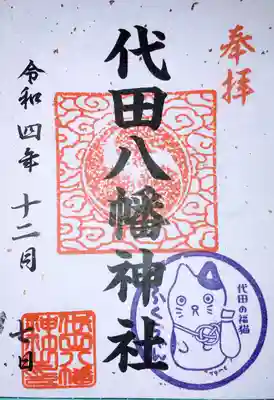 奉拝
代田八幡神社
令和四年 十二月
七日
代田の福猫
ふくちゃん